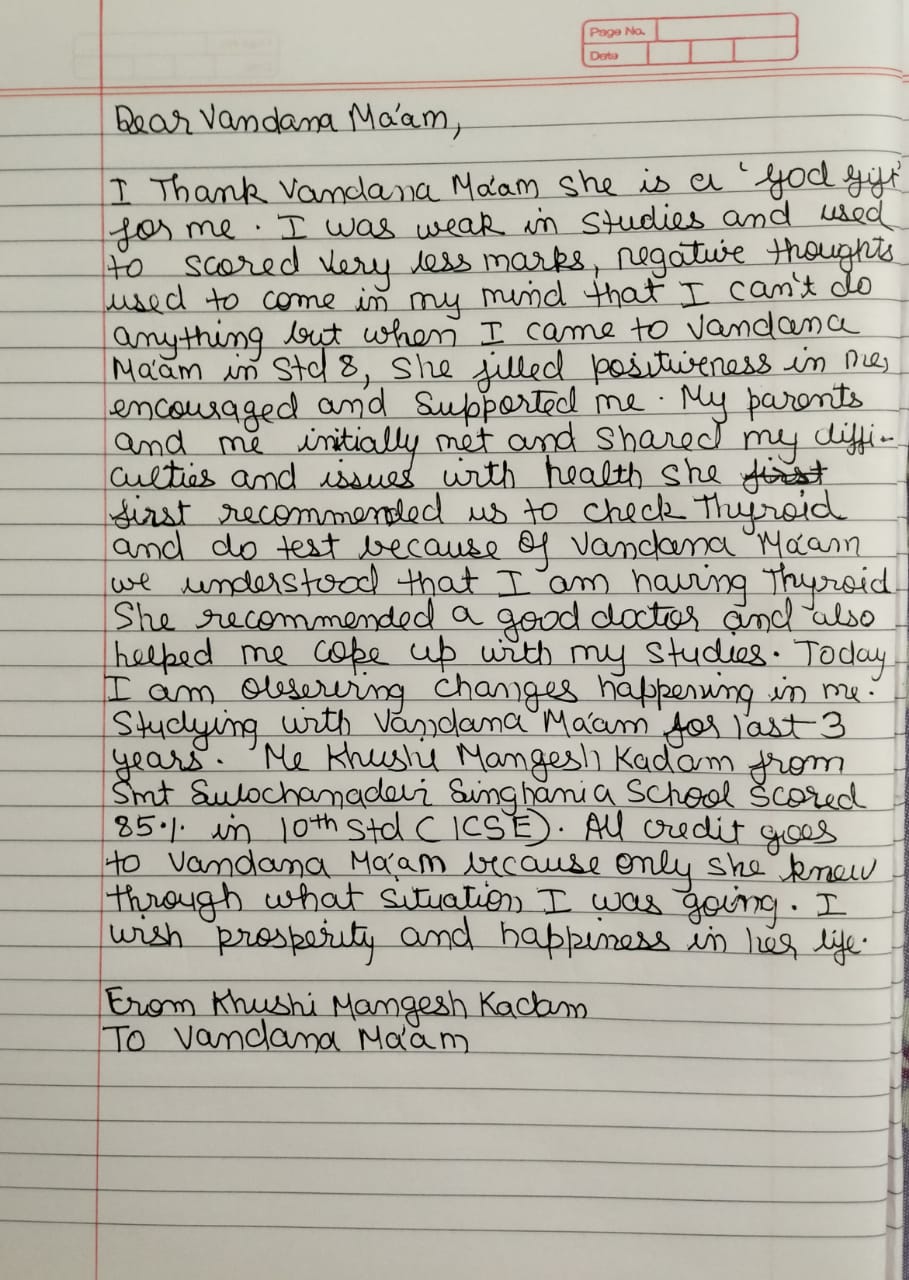 Page No.
Date
Dear Vandana Ma'am,
I Thank Vandana Ma'am she is a 'god gift
for me. I was weak in studies and used
to scored very less marks, negative thoughts
used to come in my mind that I can't do
anything but when I came to Vandana
Ma'am in Std 8, she filled positiveness in me,
encouraged and supported me. My parents
and me initially met and shared my diffi-
culties and issues with health she first
first recommended us to check Thyroid
and do test because of Vandana Ma'am
we understood that I am having Thyroid
She recommended a good doctor and also
helped me cope up with my studies. Today
I am observing changes happening in me.
Studying with Vandana Ma'am for last 3
years. Me Khushi Mangesh Kadam from
Smt Sulochanadevi Singhania School scored
85% in 10th Std (ICSE). All credit goes
to Vandana Ma'am because only she knew
through what situation I was going. I
wish prosperity and happiness in her life.
From Khushi Mangesh Kadam
To Vandana Ma'am